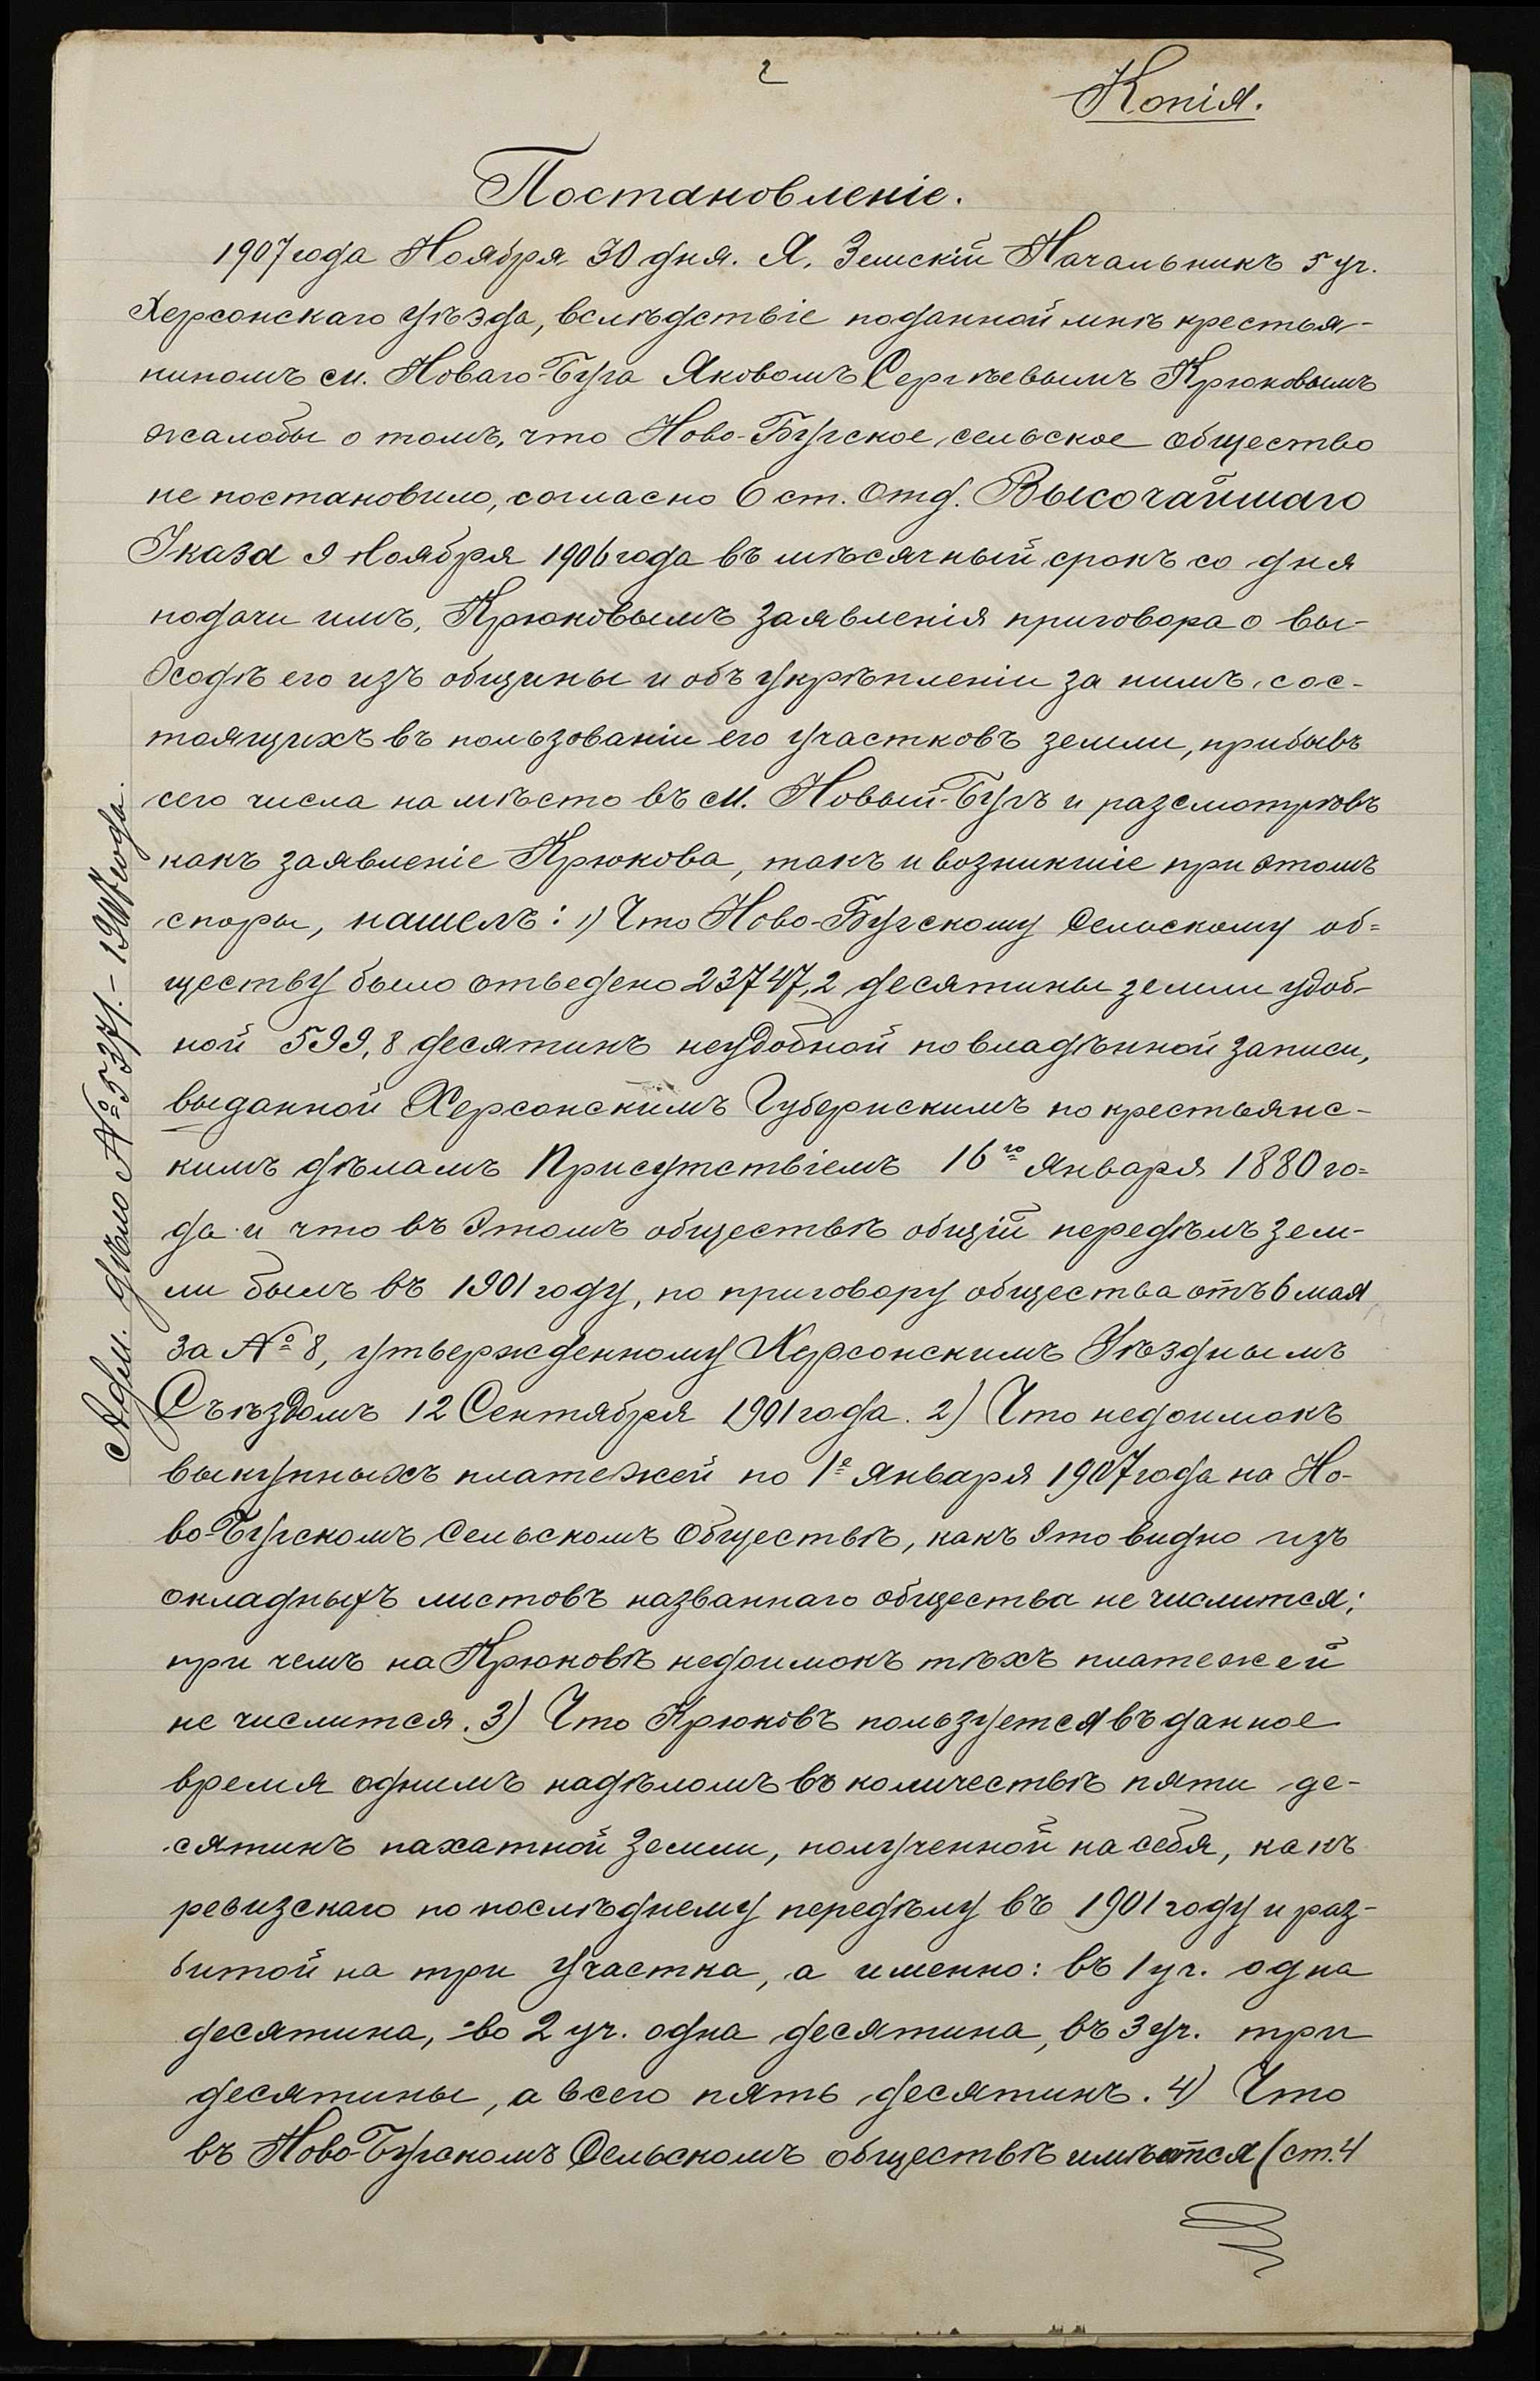 2
Копія.
Постановленіе.
1907 года Ноября 30 дня. Я, Земскій Начальникъ 5 уч.
Херсонскаго уѣзда, вслѣдствіе поданной мнѣ крестья-
ниномъ м. Новаго-Буга Яковомъ Сергѣевымъ Крюковымъ
жалобы о томъ, что Ново-Бугское сельское общество
не постановило, согласно 6 ст. Отд. Высочайшаго
Указа 9 Ноября 1906 года въ мѣсячный срокъ со дня
подачи имъ, Крюковымъ заявленія приговора о вы-
ходѣ его изъ общины и объ укрѣпленіи за нимъ, сос-
тоящихъ въ пользованіи его участковъ земли, прибывъ
сего числа на мѣсто въ м. Новый-Бугъ и разсмотрѣвъ
какъ заявленіе Крюкова, такъ и возникшіе при этомъ
споры, нашелъ: 1) Что Ново-Бугскому Сельскому об=
ществу было отведено 23747,2 десятины земли удоб-
ной 599,8 десятинъ неудобной по владѣнной записи,
выданной Херсонскимъ Губернскимъ по крестьянс-
кимъ дѣламъ Присутствіемъ 16го Января 1880 го=
да и что въ этомъ обществѣ общій передѣлъ зем-
ли былъ въ 1901 году, по приговору общества отъ 6 мая
за № 8, утвержденному Херсонскимъ Уѣзднымъ
Съѣздомъ 12 Сентября 1901 года. 2) Что недоимокъ
выкупныхъ платежей по 1е Января 1907 года на Но-
во-Бугскомъ Сельскомъ Обществѣ, какъ это видно изъ
окладныхъ листовъ названнаго общества не числится;
при чемъ на Крюковѣ недоимокъ тѣхъ платежей
не числится. 3) Что Крюковъ пользуется въ данное
время однимъ надѣломъ въ количествѣ пяти де-
сятинъ пахатной земли, полученной на себя, какъ
ревизскаго по послѣднему передѣлу въ 1901 году и раз-
битой на три участка, а именно: въ 1 уч. одна
десятина, во 2 уч. одна десятина, въ 3 уч. три
десятины, а всего пять десятинъ. 4) Что
въ Ново-Бугскомъ Сельскомъ обществѣ имѣются (ст. 4
Адм. дѣло № 5371. - 1907 года.